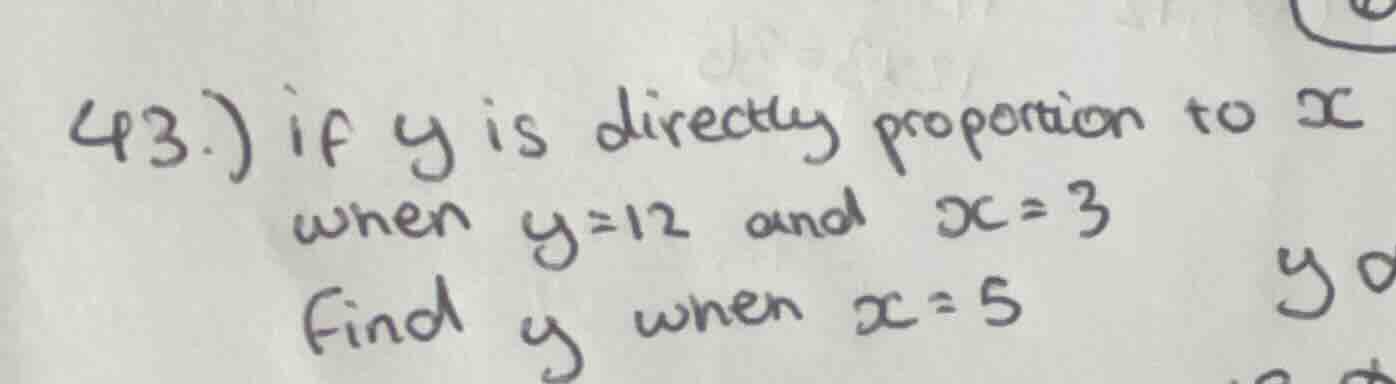 43.) if y is directly proportion to x
when y=12 and x=3
find y when x=5
y